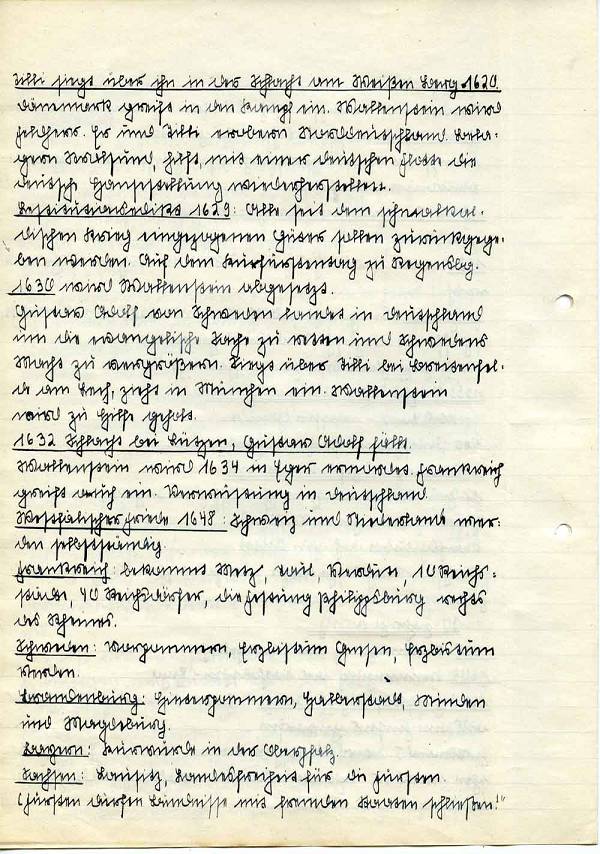 Tilli siegt über ihn in der Schlacht am Weißen Berg 1620.
Dänemark greift in den Kampf ein. Wallenstein wird
Feldherr. Er und Tilli erobern Norddeutschland. Bela-
gern Stralsund, hilft, mit einer deutschen Flotte die
deutsche wiederherstellen.
Restitutionsedikt 1629: Alle seit dem schmalkal-
dischen Krieg eingezogenen Güter sollen zurückgege-
ben werden. Auf dem Kurfürstentag zu Regensbg.
1630 wird Wallenstein abgesetzt.
Gustav Adolf von Schweden landet in Deutschland
um die evangelische Sache zu retten und Schwedens
Macht zu vergrößern. Siegt über Tilli bei Breitenfel-
d am Lech, zieht in München ein. Wallenstein
wird zu Hilfe geholt.
1632 Schlacht bei Lützen, Gustav Adolf fällt.
Wallenstein wird 1634 in Eger ermordet. Frankreich
greift auch ein. Verwüstung in Deutschland.
Westfälischer Friede 1648: Schweiz und Niederlande wer-
den selbstständig.
Frankreich: bekommt Metz, Tull, Verdun, 10 Reichs-
städte, 40 Reichsdörfer, die Festung Philippsburg rechts
des Rheines.
Schweden: Vorpommern, Erzbistum Bremen, Erzbistum
Verden.
Brandenburg: Hinterpommern, Halberstadt, Minden
und Magdeburg.
Bayern: Kurwürde in der Oberpfalz.
Sachsen: Lausitz, Landesfreiheit für die Fürsten.
(Fürsten dürfen Bündnisse mit fremden Staaten schließen!"